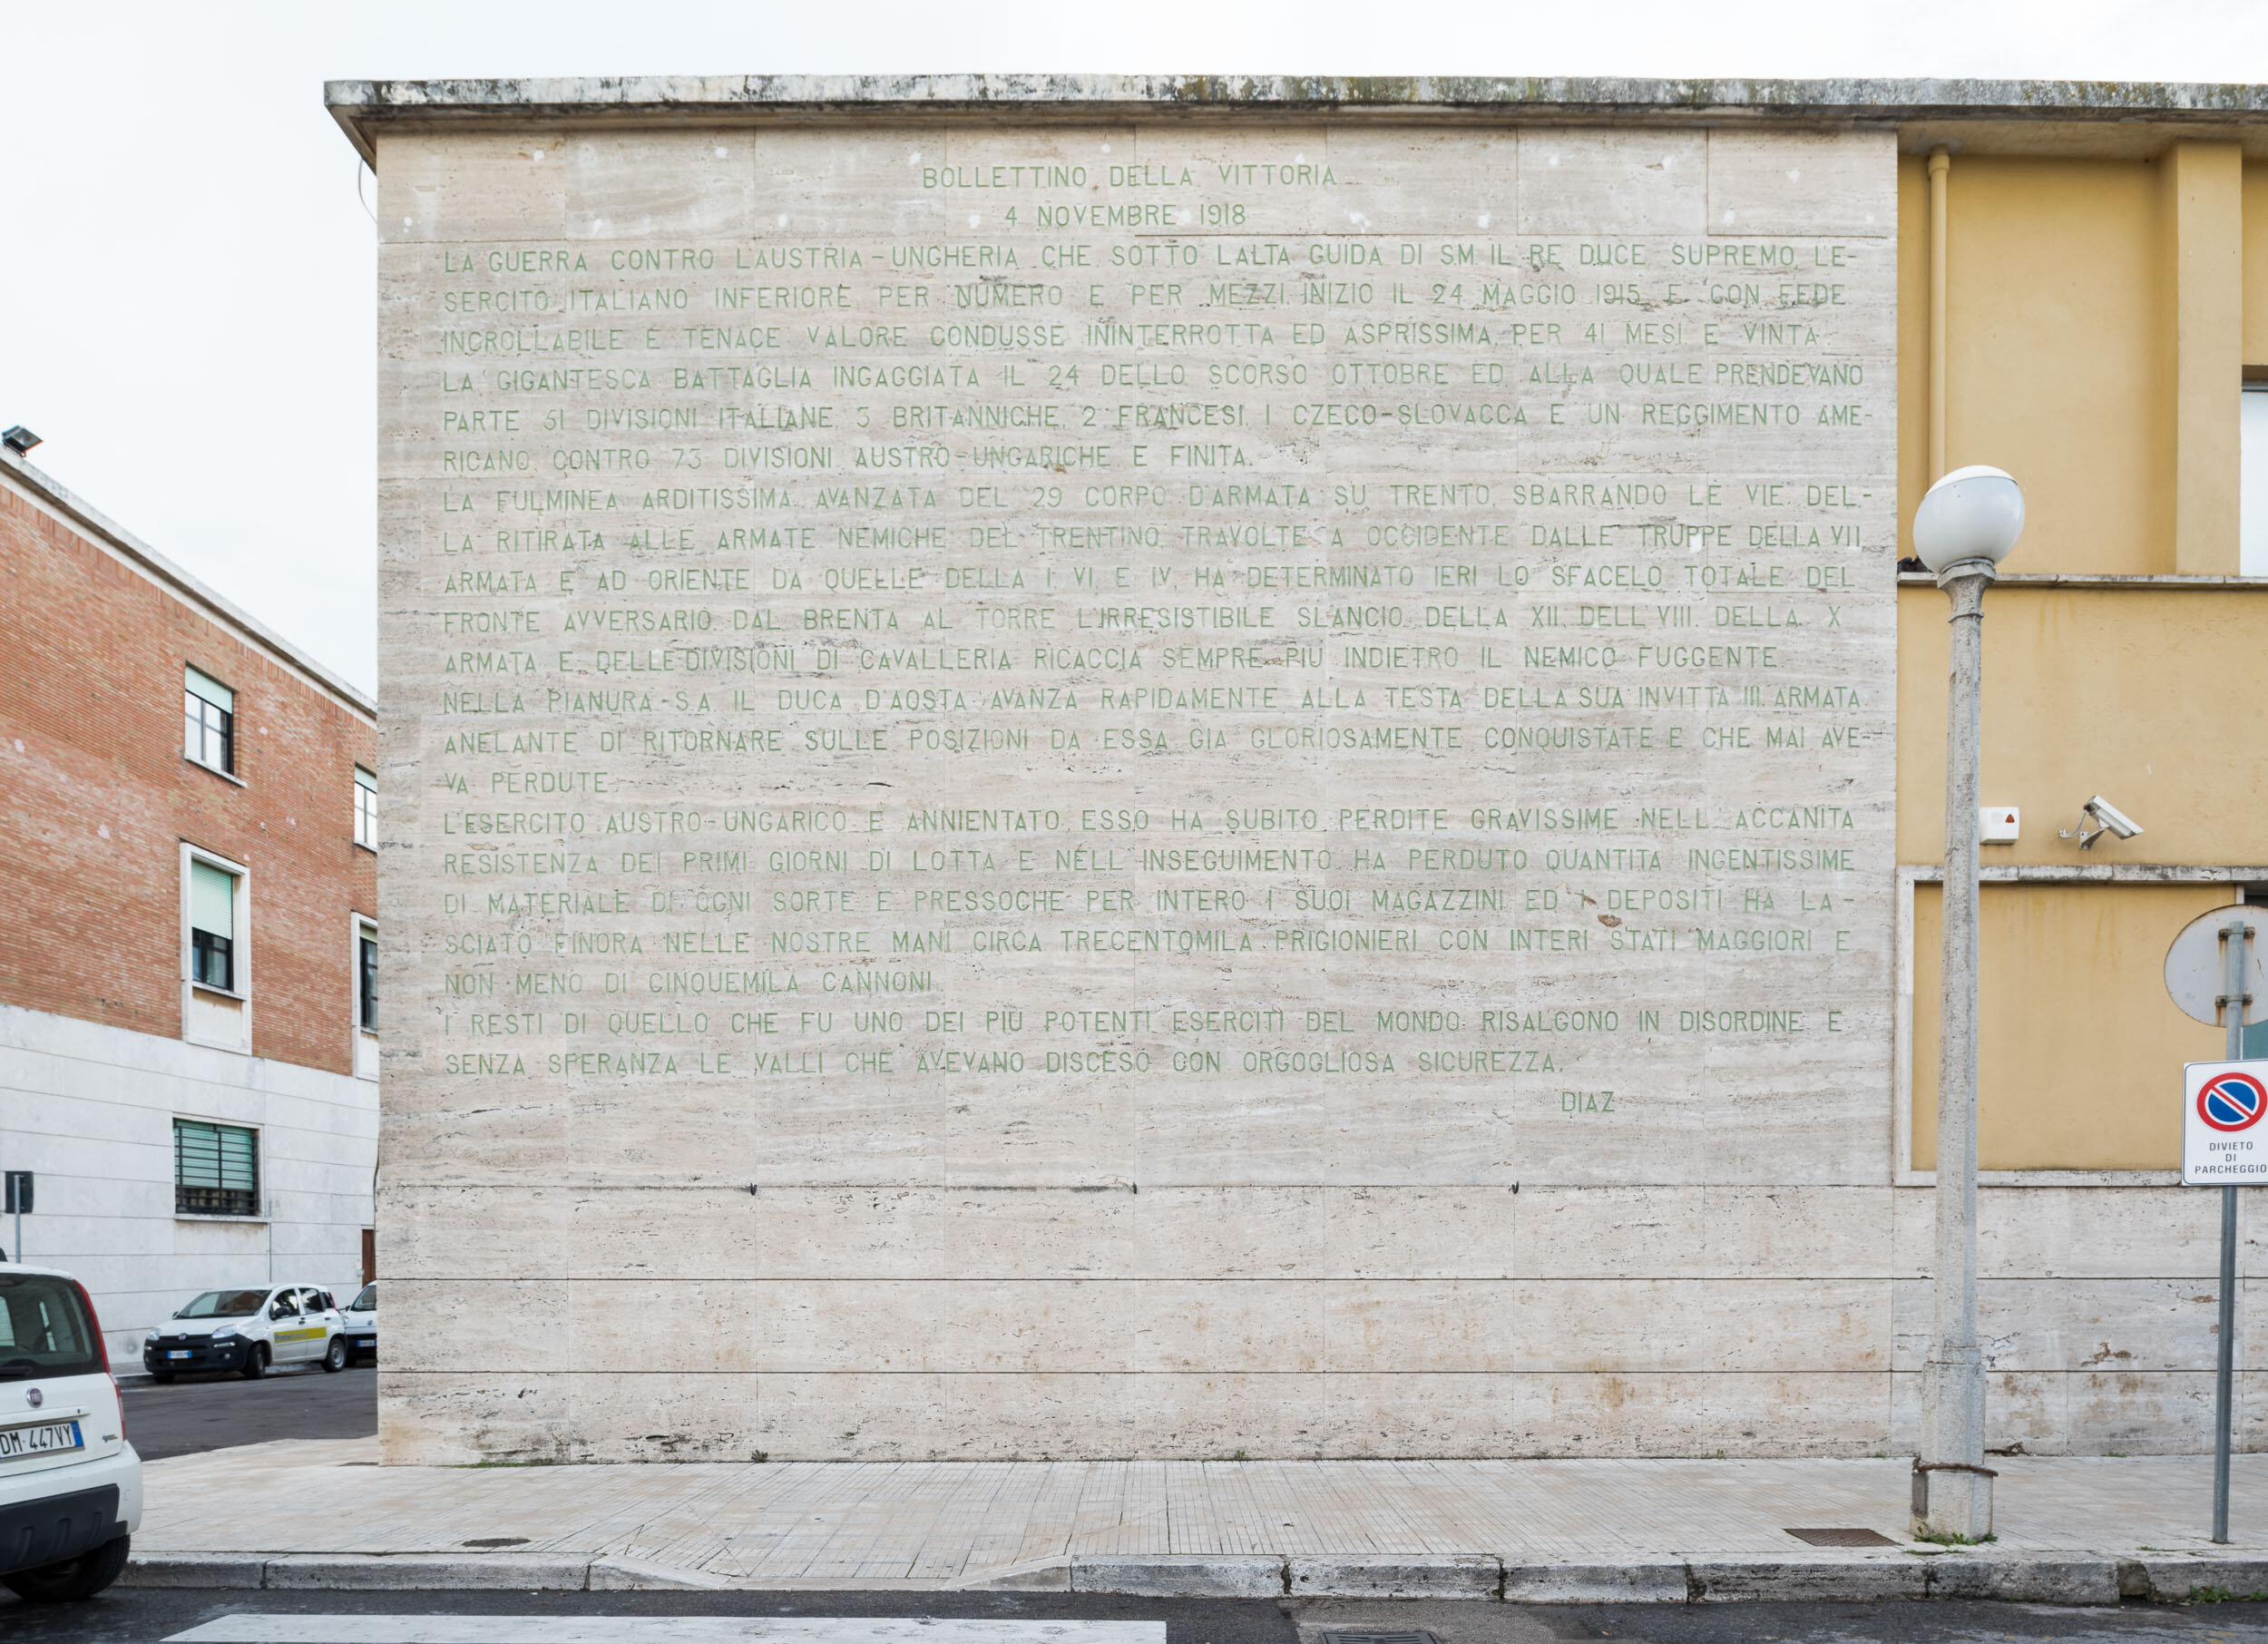 BOLLETTINO DELLA VITTORIA
4 NOVEMBRE 1918
LA GUERRA CONTRO L'AUSTRIA-UNGHERIA CHE SOTTO L'ALTA GUIDA DI S.M. IL RE DUCE SUPREMO L'E-
SERCITO ITALIANO INFERIORE PER NUMERO E PER MEZZI INIZIO IL 24 MAGGIO 1915 E CON FEDE
INCROLLABILE E TENACE VALORE CONDUSSE ININTERROTTA ED ASPRISSIMA PER 41 MESI E VINTA
LA GIGANTESCA BATTAGLIA INGAGGIATA IL 24 DELLO SCORSO OTTOBRE ED ALLA QUALE PRENDEVANO
PARTE 51 DIVISIONI ITALIANE, 3 BRITANNICHE, 2 FRANCESI, 1 CZECO-SLOVACCA E UN REGGIMENTO AME-
RICANO, CONTRO 73 DIVISIONI AUSTRO-UNGARICHE E FINITA.
LA FULMINEA ARDITISSIMA AVANZATA DEL 29 CORPO D'ARMATA SU TRENTO, SBARRANDO LE VIE DEL-
LA RITIRATA ALLE ARMATE NEMICHE DEL TRENTINO, TRAVOLTE A OCCIDENTE DALLE TRUPPE DELLA VII
ARMATA E AD ORIENTE DA QUELLE DELLA I, VI, E IV, HA DETERMINATO IERI LO SFACELO TOTALE DEL
FRONTE AVVERSARIO. DAL BRENTA AL TORRE L'IRRESISTIBILE SLANCIO DELLA XII, DELL'VIII, DELLA X
ARMATA E DELLE DIVISIONI DI CAVALLERIA RICACCIA SEMPRE PIU INDIETRO IL NEMICO FUGGENTE
NELLA PIANURA S.A. IL DUCA D'AOSTA AVANZA RAPIDAMENTE ALLA TESTA DELLA SUA INVITTA III. ARMATA
ANELANTE DI RITORNARE SULLE POSIZIONI DA ESSA GIA GLORIOSAMENTE CONQUISTATE E CHE MAI AVE-
VA PERDUTE.
L'ESERCITO AUSTRO-UNGARICO E ANNIENTATO, ESSO HA SUBITO PERDITE GRAVISSIME NELL'ACCANITA
RESISTENZA DEI PRIMI GIORNI DI LOTTA E NELL'INSEGUIMENTO HA PERDUTO QUANTITA INGENTISSIME
DI MATERIALE DI OGNI SORTE E PRESSOCHE PER INTERO I SUOI MAGAZZINI ED I DEPOSITI HA LA-
SCIATO FINORA NELLE NOSTRE MANI CIRCA TRECENTOMILA PRIGIONIERI CON INTERI STATI MAGGIORI E
NON MENO DI CINQUEMILA CANNONI
I RESTI DI QUELLO CHE FU UNO DEI PIU POTENTI ESERCITI DEL MONDO RISALGONO IN DISORDINE E
SENZA SPERANZA LE VALLI CHE AVEVANO DISCESO CON ORGOGLIOSA SICUREZZA.
DIAZ
DIVIETO
DI
PARCHEGGIO
DM 447VY